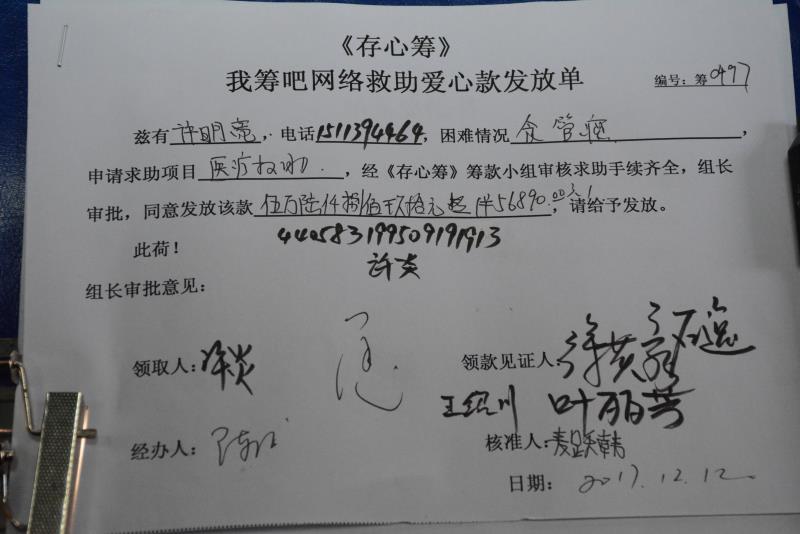 《存心筹》
我筹吧网络救助爱心款发放单 编号：筹0497
兹有许明亮，电话1511394464，困难情况食管癌，
申请求助项目医疗救助，经《存心筹》筹款小组审核求助手续齐全，组长
审批，同意发放该款伍万陆仟捌佰玖拾元 (¥56890.00元)，请给予发放。
此荷！ 440583199509191913
许炎
组长审批意见：
领取人：许炎 领款见证人：
叶丽芳
经办人： 核准人：
日期：2017.12.12